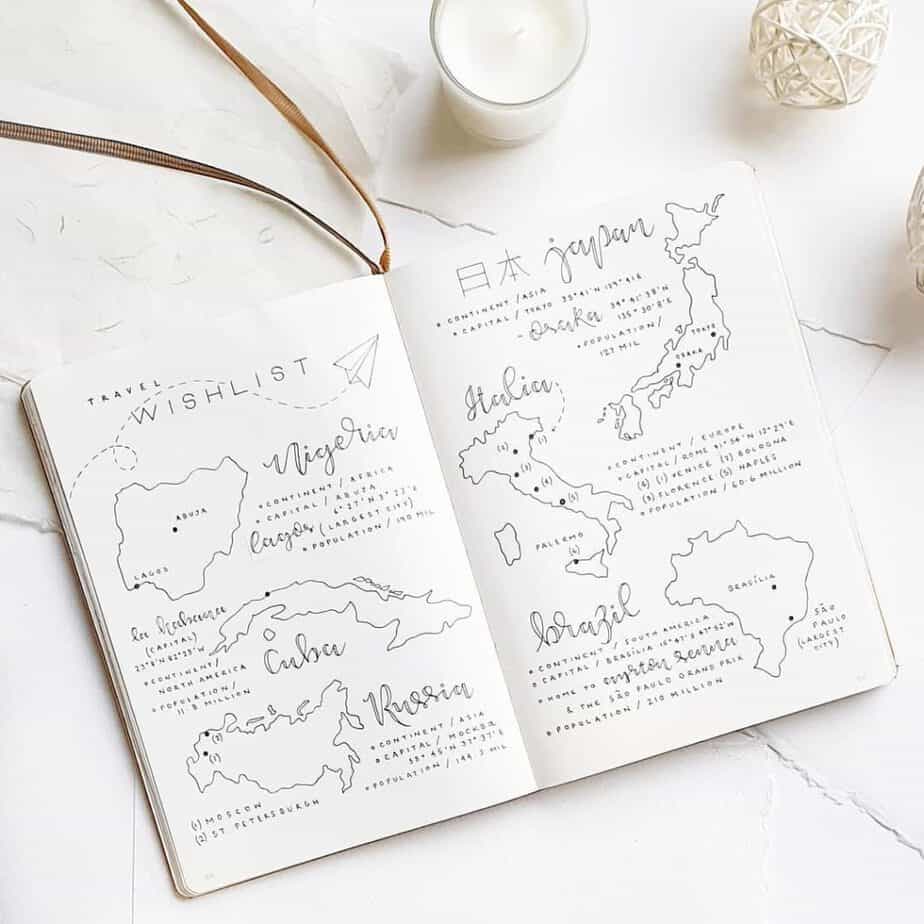 TRAVEL
WISHLIST
Nigeria
CONTINENT / AFRICA
CAPITAL / ABUJA
6°27'N 3°23'E
lagos (LARGEST CITY)
POPULATION / 190 MIL
ABUJA
LAGOS
la habana
(CAPITAL)
23°8'N 82°23'W
CONTINENT /
NORTH AMERICA
POPULATION /
11'8 MILLION
Cuba
Russia
CONTINENT / ASIA
CAPITAL / MOCKOW
55°45'N 37°37'E
POPULATION / 144'3 MIL
(2)
(1)
(1) MOSCOW
(2) ST PETERSBURGH
日本 japan
CONTINENT / ASIA
CAPITAL / TOKYO 35°41'N 139°41'E
osaka 34°41'38"N
135°30'8"E
POPULATION /
127 MIL
TOKYO
OSAKA
Italia
CONTINENT / EUROPE
CAPITAL / ROME 41°54'N 12°29'E
VENICE BOLOGNA
FLORENCE (5) NAPLES
POPULATION / 60.6 MILLION
PALERMO
brazil
CONTINENT / SOUTH AMERICA
CAPITAL / BRASÍLIA 15°47'S 47°52'W
HOME TO ayrton senna
& THE SÃO PAULO GRAND PRIX
POPULATION / 210 MILLION
BRASÍLIA
SÃO
PAULO
(LARGEST
CITY)